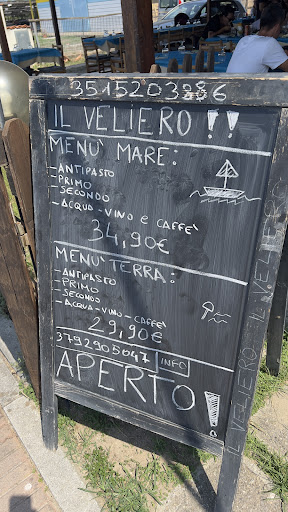 3515203286
IL VELIERO !!
MENU' MARE:
- ANTIPASTO
- PRIMO
- SECONDO
- ACQUA - VINO e CAFFE'
34,90€
MENU' TERRA:
- ANTIPASTO
- PRIMO
- SECONDO
- ACQUA - VINO - CAFFE'
29,90€
3792905047 INFO
APERTO !
IL VELIERO IL VELIERO